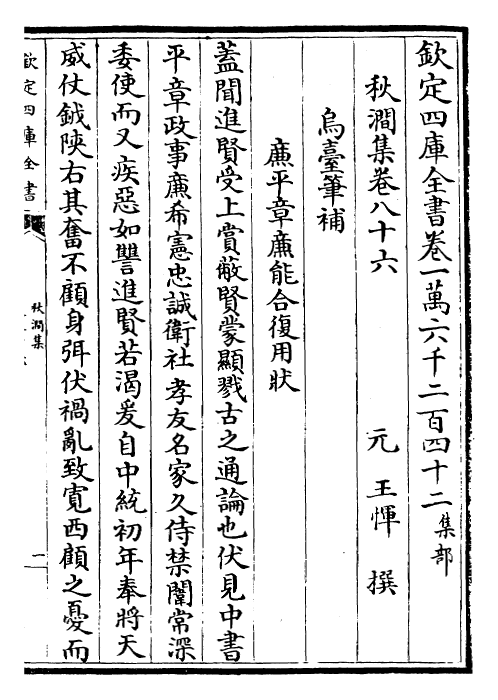 欽定四庫全書卷一萬六千二百四十二 集部
秋澗集卷八十六 元 王惲 撰
烏臺筆補
廉平章廉能合復用狀
蓋聞進賢受上賞蔽賢蒙顯戮古之通論也伏見中書
平章政事廉希憲忠誠衛社孝友名家久侍禁闥常深
委使而又疾惡如讐進賢若渴爰自中統初年奉將天
威仗鉞陝右其奮不顧身弭伏禍亂致寛西顧之憂而
欽定四庫全書
秋澗集
一